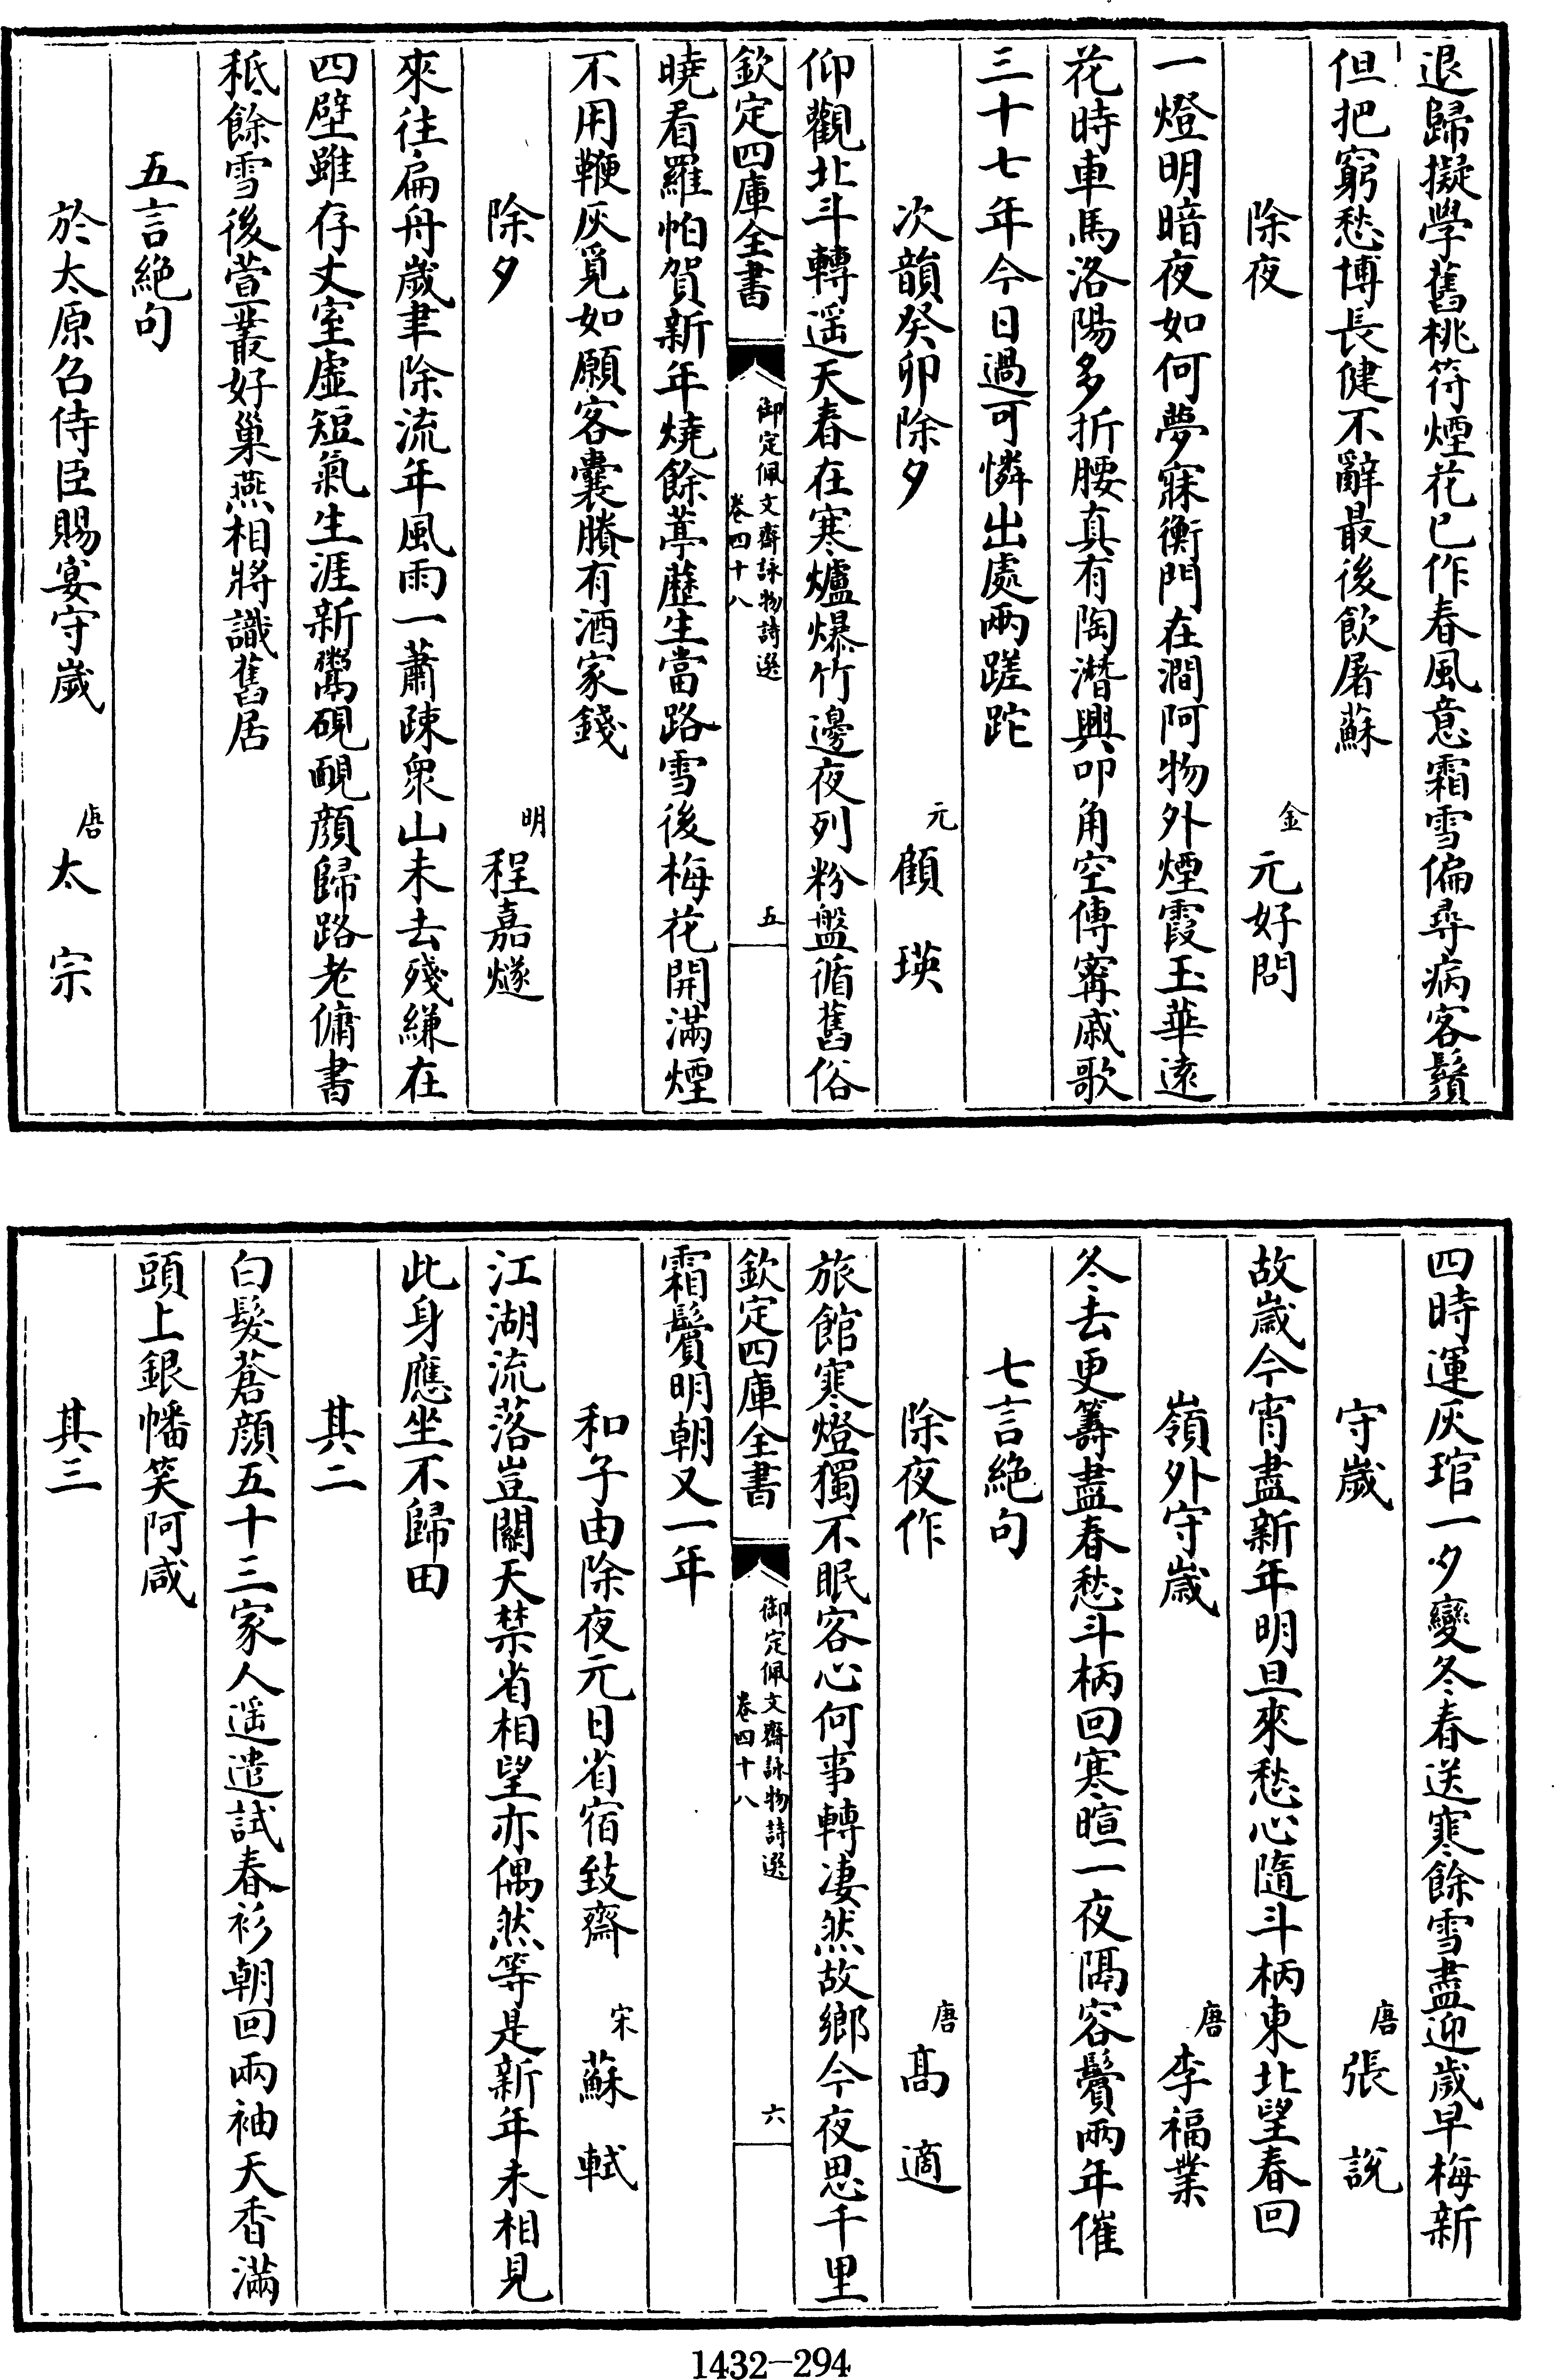 退歸擬學舊桃符煙花已作春風意霜雪偏尋病客鬚
但把窮愁博長健不辭最後飲屠蘇
除夜 金 元好問
一燈明暗夜如何夢寐衡門在澗阿物外煙霞玉華遠
花時車馬洛陽多折腰真有陶潛興叩角空傳寗戚歌
三十七年今日過可憐出處兩蹉跎
次韻癸卯除夕 元 顧瑛
仰觀北斗轉遥天春在寒爐爆竹邊夜列粉盤循舊俗
欽定四庫全書 御定佩文齋詠物詩選 卷四十八 五
曉看羅帕賀新年燒餘葶藶生當路雪後梅花開滿煙
不用鞭灰覓如願客囊賸有酒家錢
除夕 明 程嘉燧
來往扁舟歲聿除流年風雨一蕭疎衆山未去殘縑在
四壁雖存丈室虛短氣生涯新鬻硯靦顔歸路老傭書
秪餘雪後萱叢好巢燕相將識舊居
五言絶句
於太原召侍臣賜宴守歲 唐 太宗
四時運灰琯一夕變冬春送寒餘雪盡迎歲早梅新
守歲 唐 張說
故歲今宵盡新年明旦來愁心隨斗柄東北望春回
嶺外守歲 唐 李福業
冬去更籌盡春愁斗柄回寒暄一夜隔容鬢兩年催
七言絶句
除夜作 唐 高適
旅館寒燈獨不眠客心何事轉凄然故鄉今夜思千里
欽定四庫全書 御定佩文齋詠物詩選 卷四十八 六
霜鬢明朝又一年
和子由除夜元日省宿致齋 宋 蘇軾
江湖流落豈關天禁省相望亦偶然等是新年未相見
此身應坐不歸田
其二
白髮蒼顔五十三家人遥遣試春衫朝回兩袖天香滿
頭上銀幡笑阿咸
其三
1432-294